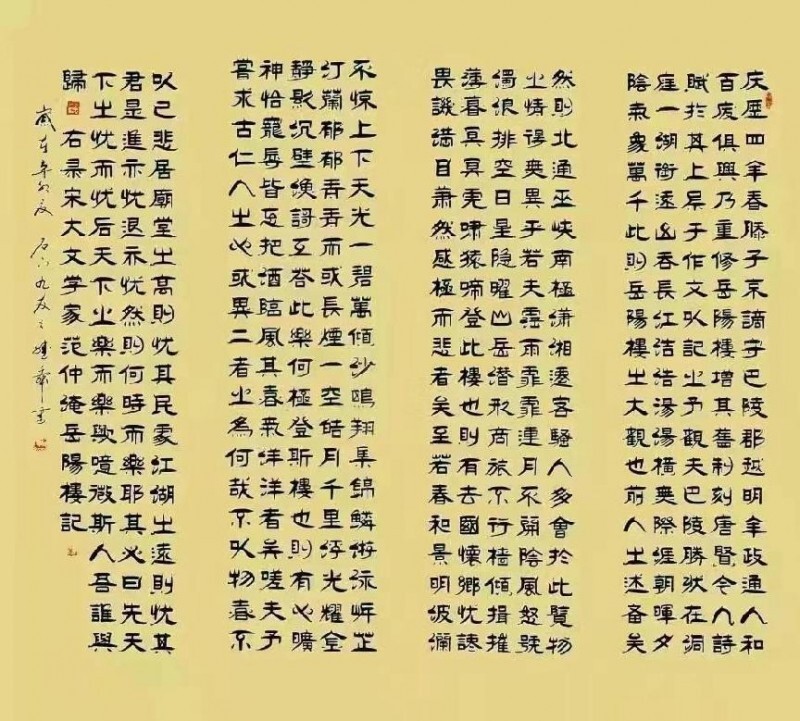 庆歷四年春滕子京謫守巴陵郡越明年政通人和
百废俱興乃重修岳陽樓增其舊制刻唐賢今人詩
賦於其上屬子作文以記之予觀夫巴陵勝狀在洞
庭一湖銜遠山吞長江浩浩湯湯橫無際涯朝暉夕
陰氣象萬千此則岳陽樓之大觀也前人之述备矣
然則北通巫峡南極瀟湘遷客騷人多會於此覽物
之情得無異乎若夫霪雨霏霏連月不開陰風怒號
濁浪排空日星隐曜山岳潜形商旅不行檣傾揖摧
薄暮冥冥虎嘯猿啼登此樓也則有去國懷鄉忧讒
畏譏滿目萧然感極而悲者矣至若春和景明波瀾
不惊上下天光一碧萬傾沙鷗翔集錦鱗游泳岸芷
汀蘭郁郁青青而或長煙一空皓月千里浮光耀金
静影沉璧渔謌互答此樂何極登斯樓也則有心曠
神怡寵辱皆忘把酒臨風其喜氣洋洋者矣嗟夫予
嘗求古仁人之心或異二者之為何哉不以物喜不
以己悲居廟堂之高則忧其民處江湖之遠則忧其
君是進亦忧退亦忧然則何時而樂耶其必曰先天
下之忧而忧后天下之樂而樂歟噫微斯人吾誰與
歸 右录宋大文学家范仲淹岳陽樓記